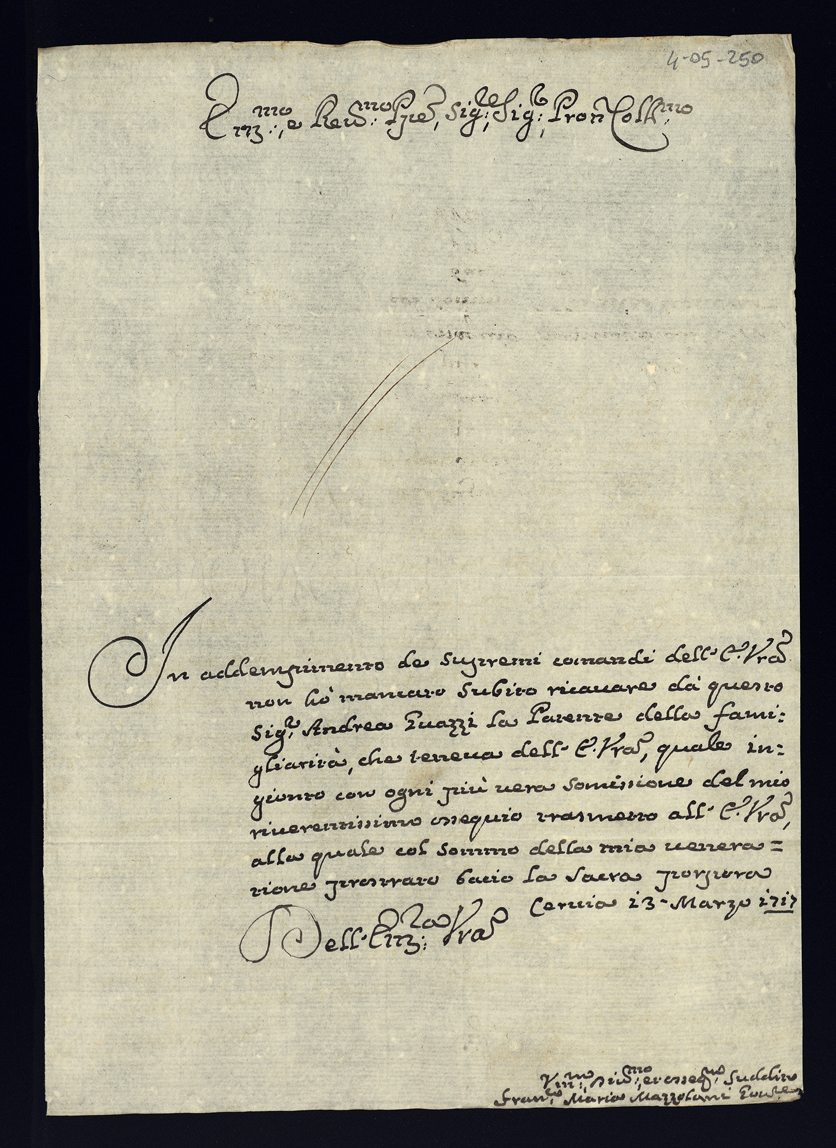 4-05-250
Em:mo, e Rev:mo Ppe, Sig:re Sig:r Pron Coll:mo
In addempimento de supremi comandi dell'E. Vra
non hò mancato subito ricavare dà questo
Sig:r Andrea Guazzi la Patente della fami:
gliarità, che teneva dell'E. Vra, quale in:
gionto con ogni più vera somissione del mio
riverentissimo ossequio trasmetto all'E. Vra,
alla quale col sommo della mia venera=
tione prostrato bacio la Sacra porpora
Cervia 13 Marzo 1717
Dell'Em:za Vra
Um:mo, Div:mo, et osseq:mo Suddito
Fran:co Maria Mazzolani Gov:re